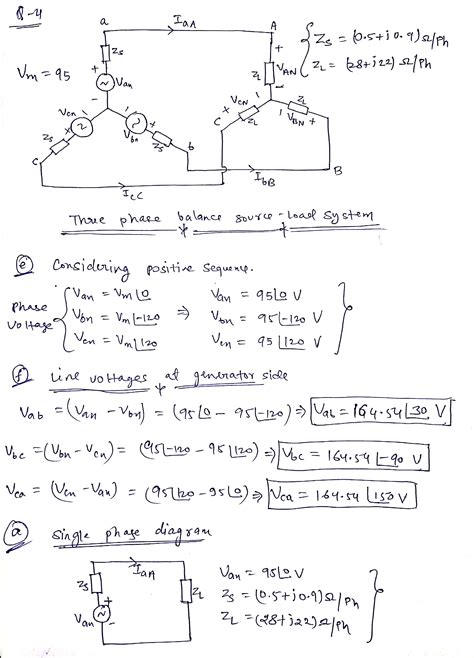 Q-4
a
I_aA
A
Z_s
+
+
Z_s = (0.5+j0.9)Ω/Ph
Z_L = (28+j22)Ω/Ph
V_m = 95
V_an
-
Z_L
V_AN
-
V_cn
V_bn
Z_s
Z_s
V_CN
Z_L
Z_L
V_BN +
c
b
C
B
I_cC
I_bB
Three phase balance source-load system
(e) Considering positive sequence.
Phase Voltage
V_an = V_m∠0 V_an = 95∠0 V
V_bn = V_m∠-120 ⇒ V_bn = 95∠-120 V
V_cn = V_m∠120 V_cn = 95∠120 V
(f) Line voltages at generator side
V_ab = (V_an - V_bn) = (95∠0 - 95∠-120) ⇒ V_ab = 164.54∠30 V
V_bc = (V_bn - V_cn) = (95∠-120 - 95∠120) ⇒ V_bc = 164.54∠-90 V
V_ca = (V_cn - V_an) = (95∠120 - 95∠0) ⇒ V_ca = 164.54∠150 V
(a) Single phase diagram
I_aA
Z_s
+
V_an
-
Z_L
V_an = 95∠0 V
Z_s = (0.5+j0.9)Ω/Ph
Z_L = (28+j22)Ω/Ph